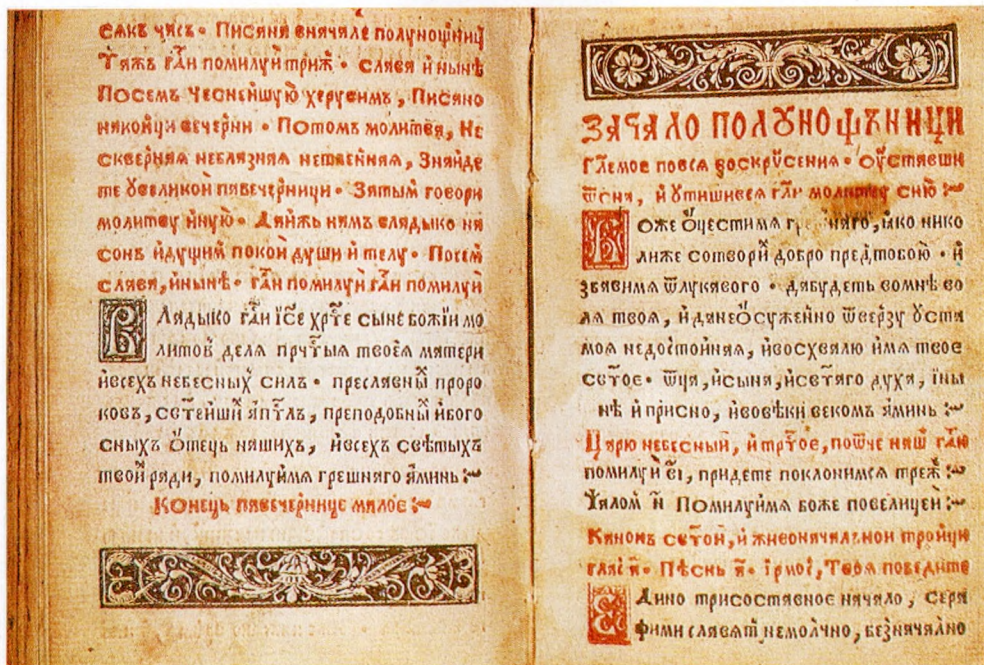 сякъ часъ · Писаня вначале полунощниц
Тажъ гди помилуй триж҃ · слава и ныне
Посемъ Честнейшую херувимъ, Писано
наконци вечерни · Потомъ молитва, Не
сквѣрная неблазная нетленная, Знайде
те увеликой павечерници · Затымъ говори
молитву иную · Даижь намъ владыко на
сонъ идущим покои души и телу · Посем
слава, иныне · гди помилуи гди помилуи
Владыко гди ісе хрте сыне божіи мо
литов деля прчтыя твоея матери
ивсехъ небесных сил · преславны проро
ковъ, светейши апстлъ, преподобны ибого
сныхъ отець нашихъ, ивсехъ светыхъ
твои ради, помилуимя грешнаго аминь :~
Конець павечернице малое :~
Зачало полуношъници
Глемое повся воскрусения · оуставши
ѿсна, и утишився гли молитву сию :~
Боже оцестимя наго, яко нико
лиже сотвори добро предтобою · и
збавимя ѿлукавого · дабудеть вомнѣ во
ля твоя, иданеосуженно ѿверзу уста
моя недостойная, ивосхвалю имя твое
светое · ѿца, исына, исветаго духа, ины
нѣ и присно, ивовѣки векомъ аминь :~
Царю небесныи, итртое, поѿче наш гдю
помилуи ві, придете поклонимся трежъ :~
Ѱалом н Помилуимя боже повелицеи :~
Канонъ светои, иживоначальнои тройци
гласи · Пѣснь а · ірмос, Тебя победите
Едино трисоставное начало, сера
фими славят немолчно, безначално